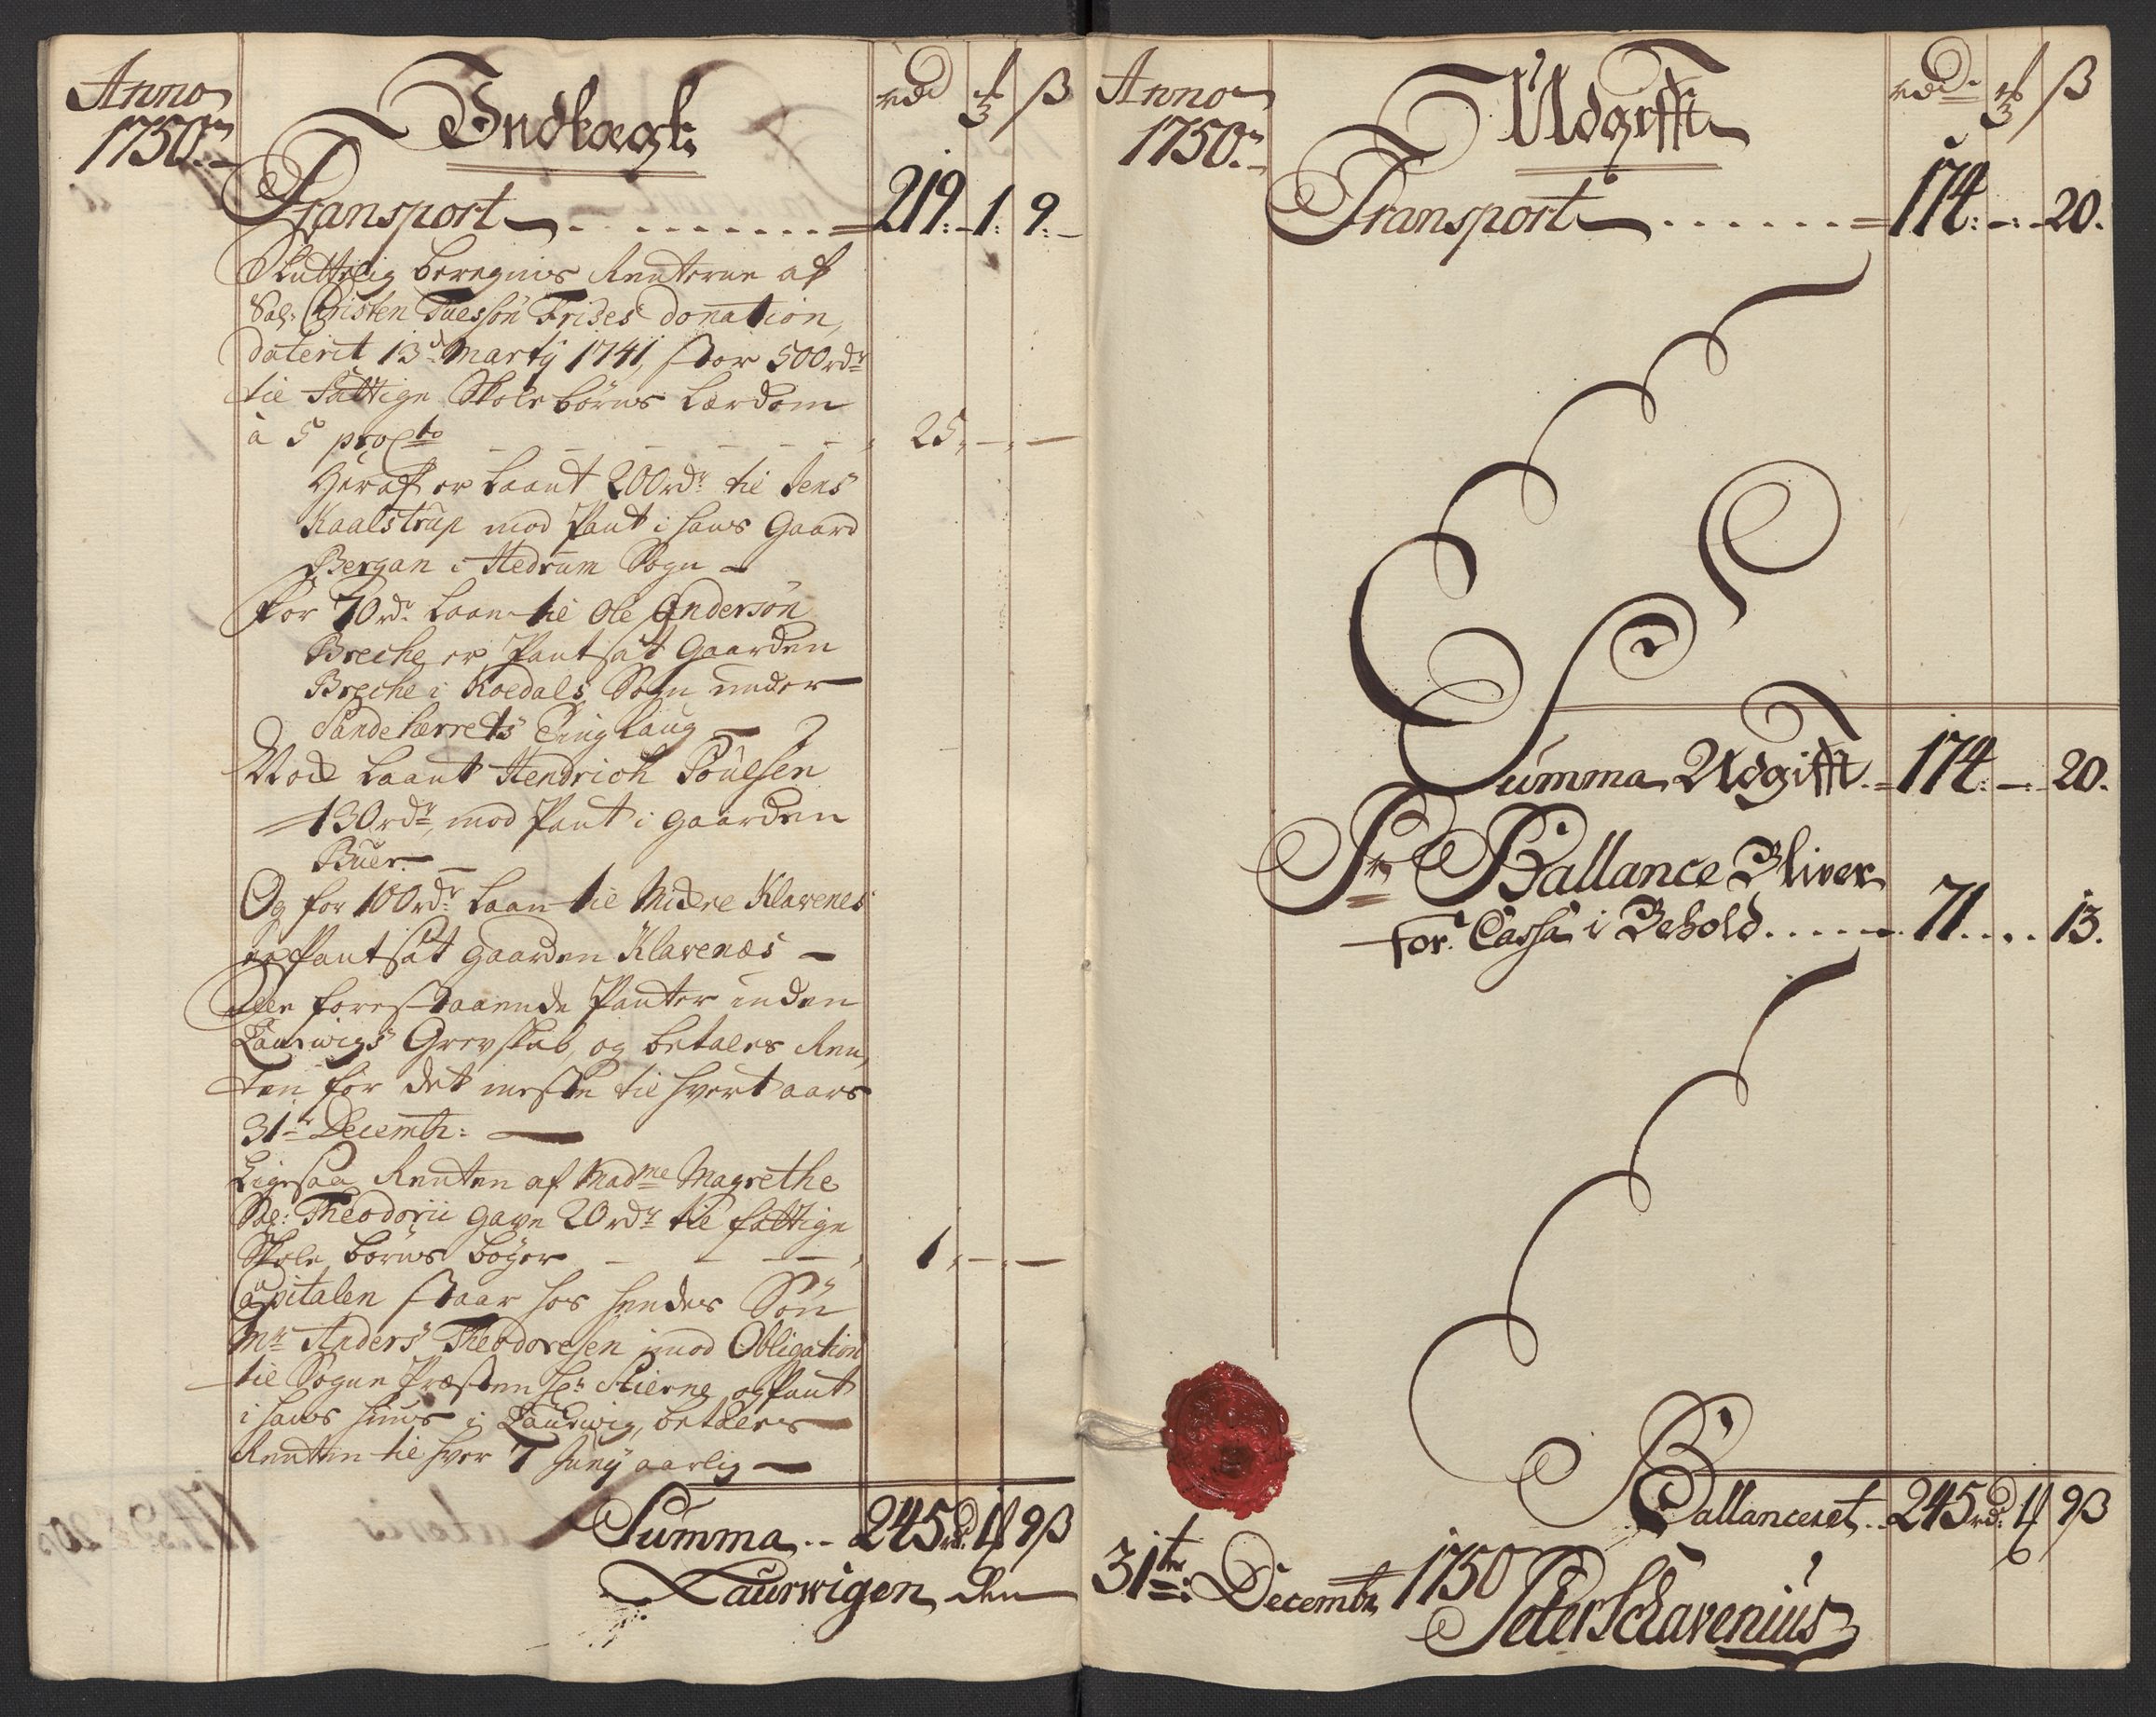 Anno
1750.
Indtægt:
rdr ƒ ß
Transport 219: 1: 9:
Sluttelig beregnes Renterne af
Sal: Christen Fries's donation,
daterit 13d Martij 1741, stor 500rdr
til Fattige Skolebørns Lærdom
à 5 proCto 25,
Heraf er laant 200rdr til Jens
Kaalstrup mod Pant i hans Gaard
Bergan i Hedrum Sogn
For 70rdr Laan til Ole Andersøn
Breche er Pantsat Gaarden
Breche i Koedals Sogn under
Sandeherrets Tinglaug
Nock laant Hendrich Poulsen
130rdr, mod Pant i gaarden
Buer
Og for 100rdr Laan til Nidere Klavenes
er Pantsat gaarden Klavenæs
Alle forestaaende Panter inden
Laurwigs Grevskab, og betales Ren,
ten for det meste til hvert aars
31te Decembr:
Ligesaa Renten af Madme Magrethe
Sal: Theodorii gave 20rdr til fattige
Skole børns bøger 1,
Capitalen staar hos hendes Søn
Mr Anders Theodoresen imod Obligation
til Sogne Præsten Hr: Stierne og Pant
i hans huus i Laurwig, betales
Renten til hver 7 Junij aarlig
Summa .. 245rdr 1ƒ 9ß
Laurwigen den
Anno
1750.
Udgifft
rdr ƒ ß
Transport 174: 20.
Summa Udgifft. 174: 20.
Pr Ballance Bliver
for Cassa i Behold 71 13.
Ballanceret .. 245rd: 1ƒ 9ß
31te: Decembr 1750
Peter Schavenius